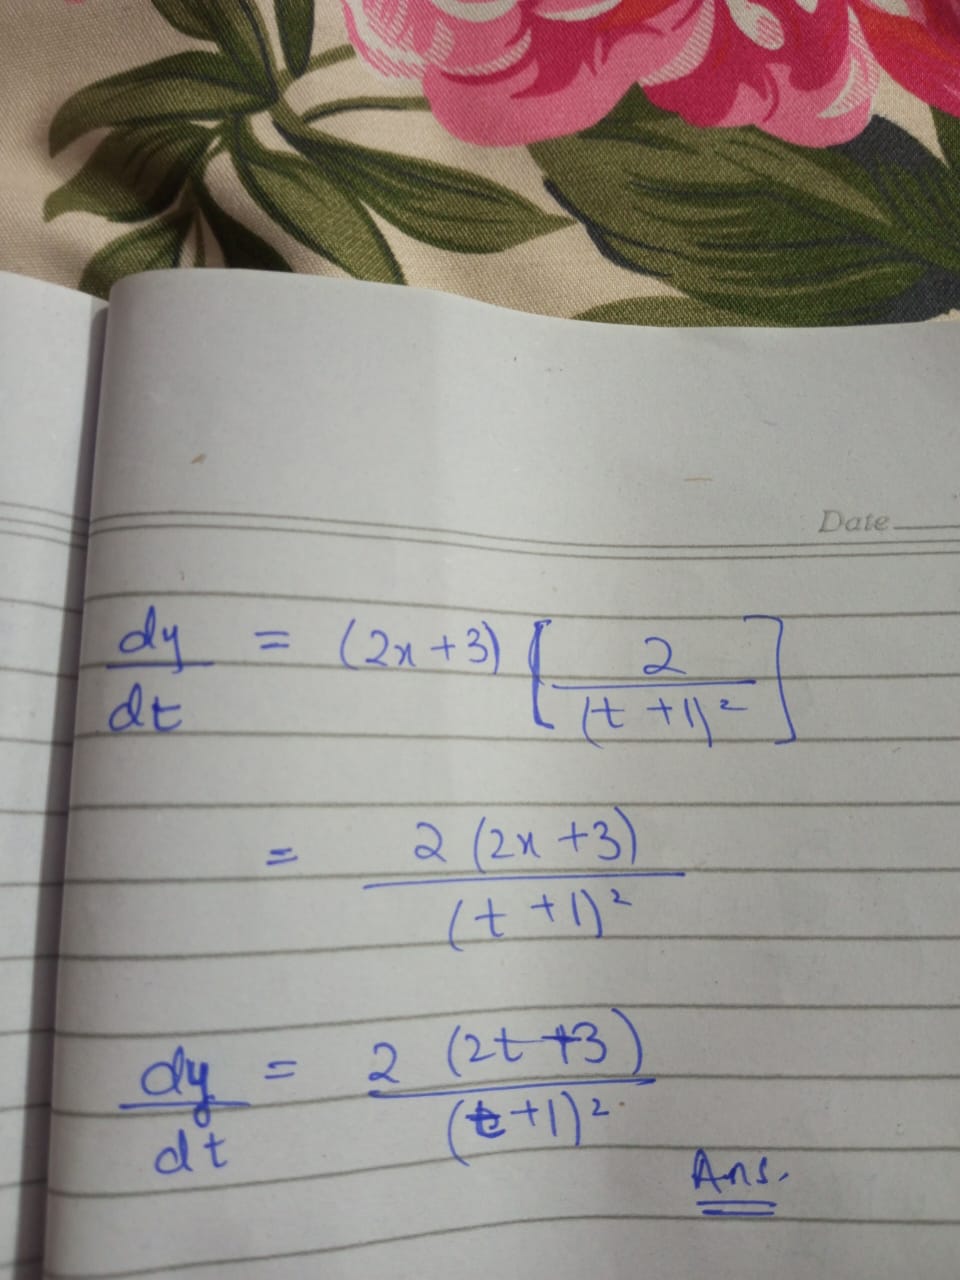 Date
dy/dt = (2x+3) [2/(t+1)²]
= 2(2x+3)/(t+1)²
dy/dt = 2(2t+3)/(t+1)²
Ans.